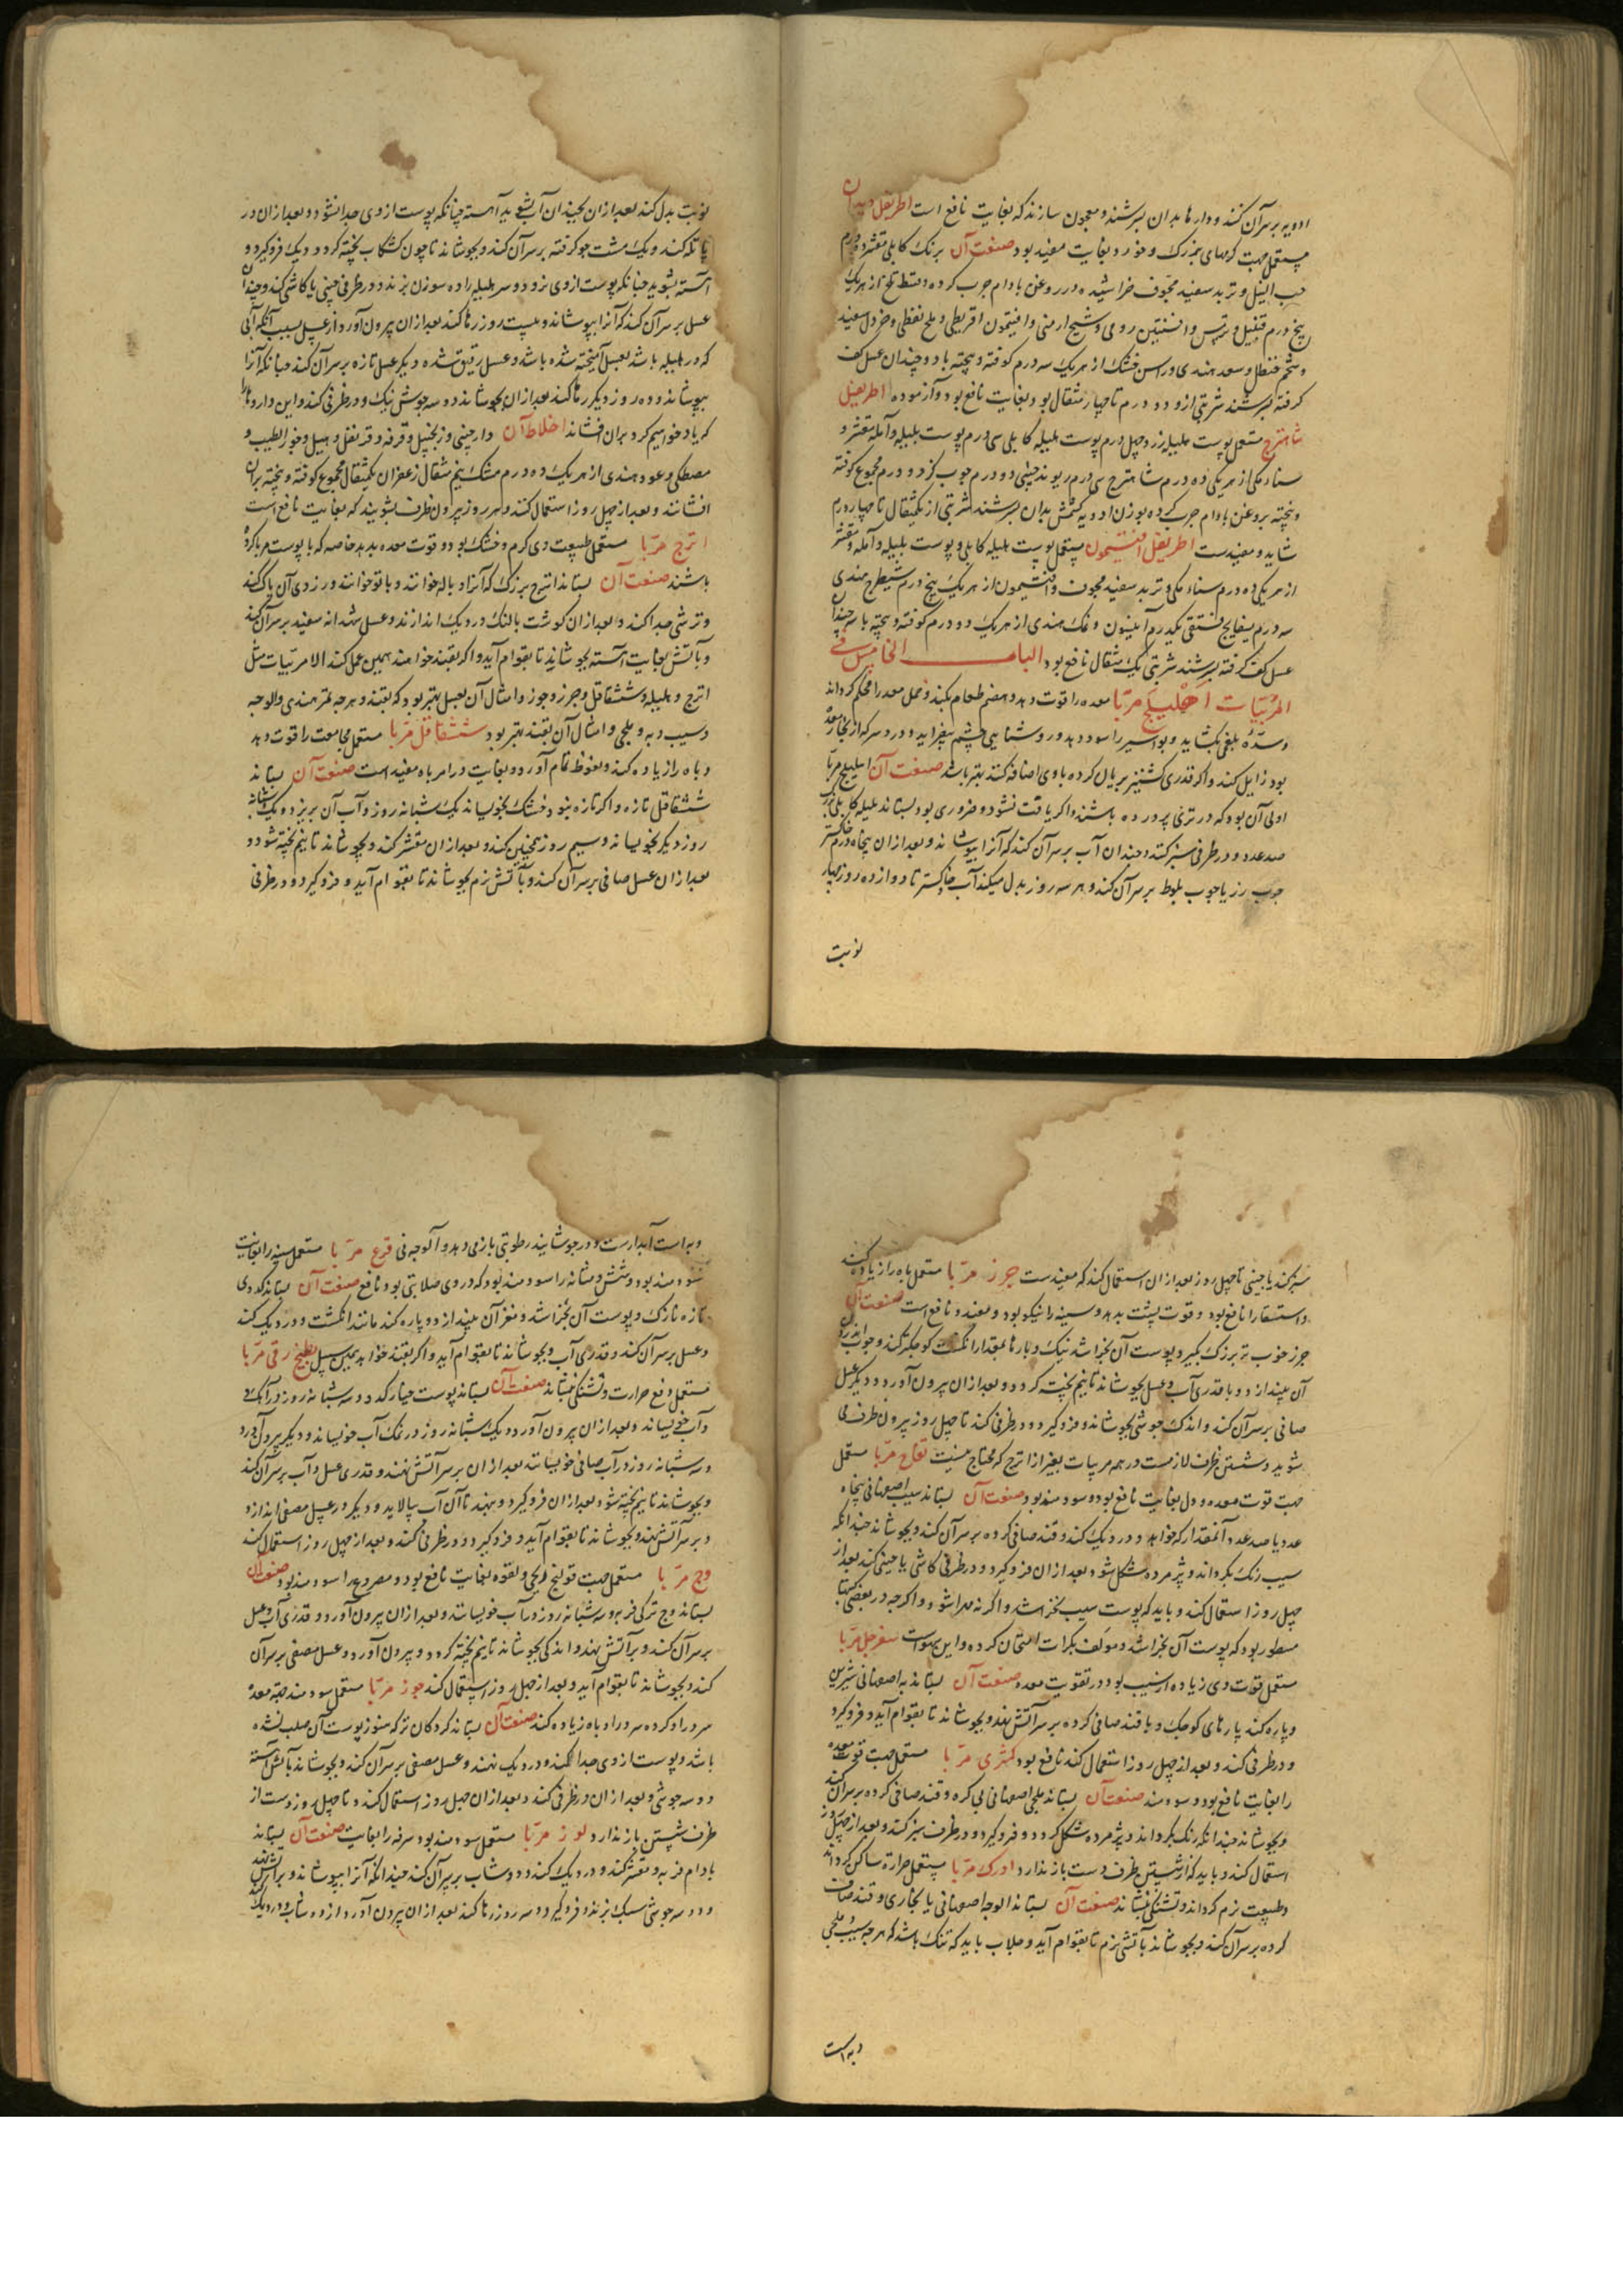 ادویه بر سر آن کنند و دارها بدان بسرشند و معجون سازند که بغایت نافع است اطریفل دیدان
مستعمل جهت کرمهای بزرک و خورد بغایت مفید بود صنعت آن برنک کابلی مقشر دو درم
حب النیل و تربد سفید مجوف خراشیده و در روغن بادام جرب کرده و قسط تلخ از هر یک
پنج درم قنبیل و ترمس و افسنتین رومی و شیح ارمنی و افتیمون اقریطی و ملح نفطی و خردل سفید
و شحم حنظل و سعد هندی و راسن خشک از هر یک سه درم کوفته و بیخته با دو چندان عسل کف
کرفته بسرشند شربتی از دو درم تا چهار مثقال بود بغایت نافع بود و آزموده اطریفل
شاهترج مستعمل پوست هلیله زرد چهل درم پوست هلیله کابلی سی درم پوست بلیله و آمله مقشر و
سناء مکی از هر یکی ده درم شاهترج سی درم ریوند چینی دو درم چوب کز دو درم مجموع کوفته
و بیخته بروغن بادام جرب کرده بوزن ادویه کشمش بدان بسرشند شربتی از یکمثقال تا چهار درم
شاید و مفیدست اطریفل افتیمون مستعمل پوست هلیله کابلی و پوست بلیله و آمله مقشر
از هر یکی ده درم سناء مکی و تربد سفید مجوف و افتیمون از هر یک پنج درم شیطرج هندی
سه درم بسفایج فستقی یکدرم انیسون و نمک هندی از هر یک دو درم کوفته و بیخته با سه چندان
عسل کف کرفته بسرشند شربتی یک مثقال نافع بود الباب الخامس فی
المربیات اهلیلج مربا معده را قوت دهد و هضم طعام بکند و خمل معده را محکم کرداند
و سدّه بلغمی بکشاید و بواسیر را سود دهد و روشنایی چشم بیفزاید و درد سر که از بخار معده
بود زایل کند و اکر قدری کشنیز بریان کرده با وی اضافه کنند بهتر باشد صنعت آن اهلیلج مربا
اولی آن بود که در تری پرورده باشند و اکر یافت نشود و ضروری بود بستاند هلیله کابلی بزرک
صد عدد و در ظرفی سبز کند و چندان آب بر سر آن کند که آنرا بپوشاند و بعد ازان پنجاه درم خاکستر
چوب رز یا چوب بلوط بر سر آن کند و هر سه روز بدل میکند آب خاکستر تا دوازده روز چهار
نوبت
نوبت بدل کند بعد ازان بچندان آب بشوید آهسته چنانکه پوست از وی جدا نشود و بعد ازان در
پاتله کند و یک مشت جو کرفته بر سر آن کند و بجوشاند تا چون کشکاب پخته کردد و دیک فرو کیرد و
آهسته بشوید چنانکه پوست از وی نرود و سر هلیله را ده سوزن بزند و در ظرفی چینی یا کاشی کند و چندان
عسل بر سر آن کند که آنرا بپوشاند و بیست روز رها کند بعد ازان بیرون آورد از عسل بسبب آنکه آبی
که در هلیله باشد بعسل آمیخته شده باشد و عسل رقیق شده دیکر عسل تازه بر سر آن کند چنانکه آنرا
بپوشاند و ده روز دیکر رها کند بعد ازان بجوشاند دو سه جوش نیک و در ظرفی کند و این داروها را
که یاد خواهیم کرد بران افشاند اخلاط آن دارچینی و زنجبیل و قرفه و قرنفل و هیل و جوز الطیب و
مصطکی و عود هندی از هر یک ده درم مشک نیم مثقال زعفران یکمثقال مجموع کوفته و بیخته بران
افشانند و بعد از چهل روز استعمال کنند و هر روز بیرون ظرف بشویند که بغایت نافع است
اترج مربا مستعمل طبیعت وی کرم و خشک بود و قوت معده بدهد خاصه که با پوست مربا کرده
باشند صنعت آن بستاند اترج بزرک که آنرا و باله خوانند و باتو خوانند و زردی آن پاک کند
و ترشی جدا کند و بعد ازان کوشت بالنک در دیک اندازند و عسل شهدانه سفید بر سر آن کند
و بآتش بغایت آهسته بجوشاند تا بقوام آید و اکر بقند خواهند همین عمل کند الا مربیات مثل
اترج و هلیله و ششقاقل و جزر و جوز و امثال آن بعسل بهتر بود که بقند و هر چه تمر هندی و الوجه
و سیب و به و بلجی و امثال آن بقند بهتر بود ششقاقل مربا مستعمل مجامعت را قوت دهد
و باه را زیاده کند و نعوظ تمام آورد و بغایت در امر باه مفید است صنعت آن بستاند
ششقاقل تازه و اکر تازه نبود خشک بخویساند یک شبانه روز و آب آن بریزد و یک شبانه
روز دیکر بخویساند و سیم روز همچنین کند و بعد ازان مقشر کند و بجوشاند تا نیم پخته شود و
بعد ازان عسل صافی بر سر آن کند و بآتش نرم بجوشاند تا بقوام آید و فرو کیرد و در ظرفی
سبز کند یا چینی تا چهل روز بعد ازان استعمال کند که مفیدست جزر مربا مستعمل باه را زیاده کند
و استسقا را نافع بود و قوت پشت بدهد و سینه را نیکو بود و مفید و نافع است صنعت آن
جزر خوب تر بزرک بکیرد و پوست آن بخراشد نیک و پارها بمقدار انکشت کوچک کند و چوب اندرون
آن بیندازد و با قدری آب و عسل بجوشاند تا نیم پخته کردد و بعد ازان بیرون آورد و دیکر عسل
صافی بر سر آن کند و اندک جوشی بجوشاند و فرو کیرد و در ظرفی کند تا چهل روز بیرون ظرف می
شوید و شستن ظرف لازمست در همه مربیات بغیر از اترج که محتاج نیست تفاح مربا مستعمل
جهت قوت معده و دل بغایت نافع بود و سودمند بود صنعت آن بستاند سیب اصفهانی پنجاه
عدد یا صد عدد آنمقدار که خواهد و در دیک کند و قند صافی کرده بر سر آن کند و بجوشاند چندانکه
سیب رنک بکرداند و پژمرده شکل شود بعد ازان فرو کیرد و در ظرفی کاشی یا چینی کند بعد از
چهل روز استعمال کند و باید که پوست سیب نخراشد و اکر نه مهرا شود و اکرچه در بعضی کتابها
مسطور بود که پوست آن بخراشد و مؤلف بکرات امتحان کرده و این بهتر است سفرجل مربا
مستعمل قوت وی زیاده از سیب بود در تقویت معده صنعت آن بستاند به اصفهانی شیرین
و پاره کند پارهای کوچک و با قند صافی کرده بر سر آتش نهد و بجوشاند تا بقوام آید و فرو کیرد
و در ظرفی کند و بعد از چهل روز استعمال کند نافع بود کمثری مربا مستعمل جهت قوت معده
را بغایت نافع بود و سودمند صنعت آن بستاند بلجی اصفهانی بی کره و قند صافی کرده بر سر آن کند
و بجوشاند چندانکه رنک بکرداند و پژمرده شکل کردد و فرو کیرد و در ظرف سبز کند و بعد از چهل روز
استعمال کند و باید که از شستن ظرف دست باز ندارد ادرک مربا مستعمل حرارة ساکن کرداند
و طبیعت نرم کرداند و تشنکی بنشاند صنعت آن بستاند الوجه اصفهانی یا بخاری و قند صافی
کرده بر سر آن کند و بجوشاند بآتشی نرم تا بقوام آید و جلاب باید که تنک باشد که هر چه سیب و بلجی
و به است
و به است آبدارست و در جوشانیدن رطوبتی باز می دهد و آلوجه نی قرع مربا مستعمل سینه را بغایت
سودمند بود و شش و مثانه را سودمند بود که در وی صلابتی بود نافع صنعت آن بستاند کدوی
تازه نازک و پوست آن بخراشد و مغز آن بیندازد و پاره کند مانند انکشت و در دیک کند
و عسل بر سر آن کند و قدری آب و بجوشاند تا بقوام آید و اکر بقند خواهد بهمین سبیل بطیخ رقی مربا
مستعمل دفع حرارت و تشنکی بنشاند صنعت آن بستاند پوست خیار که دو سه شبانه روز در آهک
و آب خویساند و بعد ازان بیرون آورد و یک شبانه روز در نمک آب خویساند و دیکر بیرون آورد
و سه شبانه روز در آب صافی خویساند بعد ازان بر سر آتش نهند و قدری عسل و آب بر سر آن کند
و بجوشاند تا نیم پخته شود بعد ازان فرو کیرد و بنهد تا آن آب پالاید و دیکر در عسل مصفی اندازد
و بر سر آتش نهد و بجوشاند تا بقوام آید و فرو کیرد و در ظرفی کند و بعد از چهل روز استعمال کند
وج مربا مستعمل جهت قولنج ریحی و لقوه بغایت نافع بود و مصروع را سودمند بود صنعت آن
بستاند وج ترکی فربه و سه شبانه روز در آب خویساند و بعد ازان بیرون آورد و قدری آب و عسل
بر سر آن کند و بر آتش نهد و اندکی بجوشاند تا نیم پخته کردد و بیرون آورد و عسل مصفی بر سر آن
کند و بجوشاند تا بقوام آید و بعد از چهل روز استعمال کند جوز مربا مستعمل سودمند جهت معده
سرد را و کرده سرد را و باه زیاده کند صنعت آن بستاند کردکان تر که هنوز پوست آن صلب نشده
باشد و پوست از وی جدا کند و در دیک نهند و عسل مصفی بر سر آن کند و بجوشاند بآتش آهسته
دو سه جوشی و بعد ازان در ظرفی کند و بعد ازان چهل روز استعمال کند و تا چهل روز دست از
ظرف شستن باز ندارد لوز مربا مستعمل سودمند بود سرفه را بغایت صنعت آن بستاند
بادام فربه و مقشر کند و در دیک کند و دوشاب بر سر آن کند چندانکه آنرا بپوشاند و بر آتش نهد
و دو سه جوشی سبک بزند و فرو کیرد و سه روز رها کند بعد ازان بیرون آورد از دوشاب و در دیک